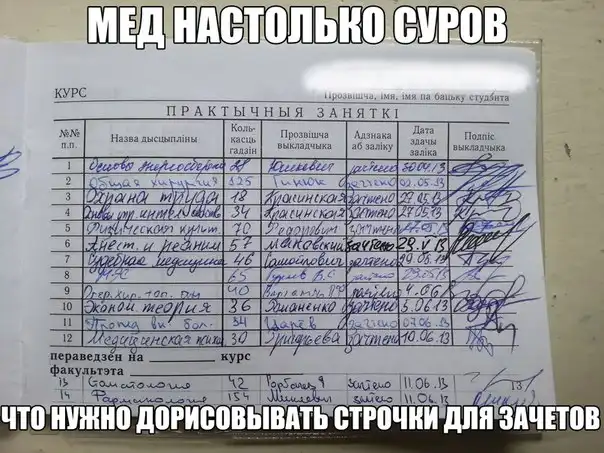 МЕД НАСТОЛЬКО СУРОВ
КУРС
Прозвішча, імя, імя па бацьку студэнта
ПРАКТЫЧНЫЯ ЗАНЯТКІ
№№ п.п. Назва дысцыпліны Коль-касць гадзін Прозвішча выкладчыка Адзнака аб заліку Дата здачы заліка Подпіс выкладчыка
1 Основы энергосбереж 28 Юшкевич зачтено 30.04.13
2 Общая хирургия 125 Тинюк зачтено 02.05.13
3 Охрана труда 18 Красинская зачтено 27.05.13
4 34 Красинская зачтено 27.05.13
5 Физическая культ 70 Федорович зачтено
6 Анест. и реаним 57 Маковский зачтено 29.V.13
7 Судебная медицина 46 зачтено 29.05.13
8 65 зачтено 29.05.13
9 Опер. хир. топ. 40 4.06.13
10 Эконом теория 36 Романенко зачтено 5.06.13
11 Пропед вн бол. 34 Царёв зачтено 07.06.13
12 Медицинская псих 30 Григорьева зачтено 10.06.13
пераведзен на курс
факультэта
13 Стоматология 42 Горбачев зачтено 11.06.13
14 Фармакология 154 зачтено 11.06.13
ЧТО НУЖНО ДОРИСОВЫВАТЬ СТРОЧКИ ДЛЯ ЗАЧЕТОВ